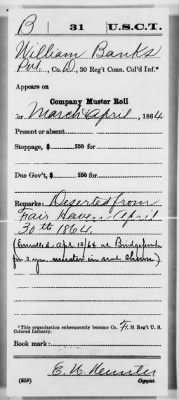 B 31 U.S.C.T.
William Banks
Pvt., Co. D, 30 Reg't Conn. Col'd Inf.*
Appears on
Company Muster Roll
for March & April, 1864.
Present or absent
Stoppage, $ 100 for
Due Gov't, $ 100 for
Remarks: Deserted from
Fair Haven April
30th 1864.
(Enrolled Apr 10/64 at Bridgeport
for 3 yrs.
*This organization subsequently became Co. F, 31 Reg't U. S.
Colored Infantry.
Book mark:
(858) Copyist.